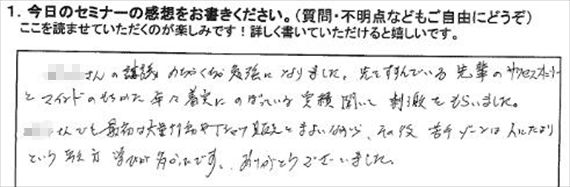 1. 今日のセミナーの感想をお書きください。(質問・不明点などもご自由にどうぞ)
ここを読ませていただくのが楽しみです!詳しく書いていただけると嬉しいです。
さんの講議 めちゃくちゃ勉強になりました。先をすすんでいる先輩のサクセスストーリー
とマインドのもちかた 年々着実にのばっている実績聞いて 刺激をもらいました。
さんでも最初は大量行動やTシャツ販売と まよいながら、その後 苦手ゾーンは人にたより
という考え方 学びが多かったです。ありがとうございました。